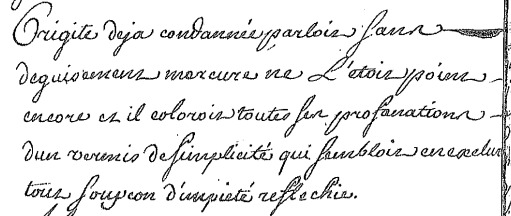 Origite deja condannée parloit sans
deguisement mercure ne L'etoit point
encore et il coloroit toutes ses profanations
dun vernis de simplicité qui sembloit en exclure
tout soupçon d'impieté reflechie.